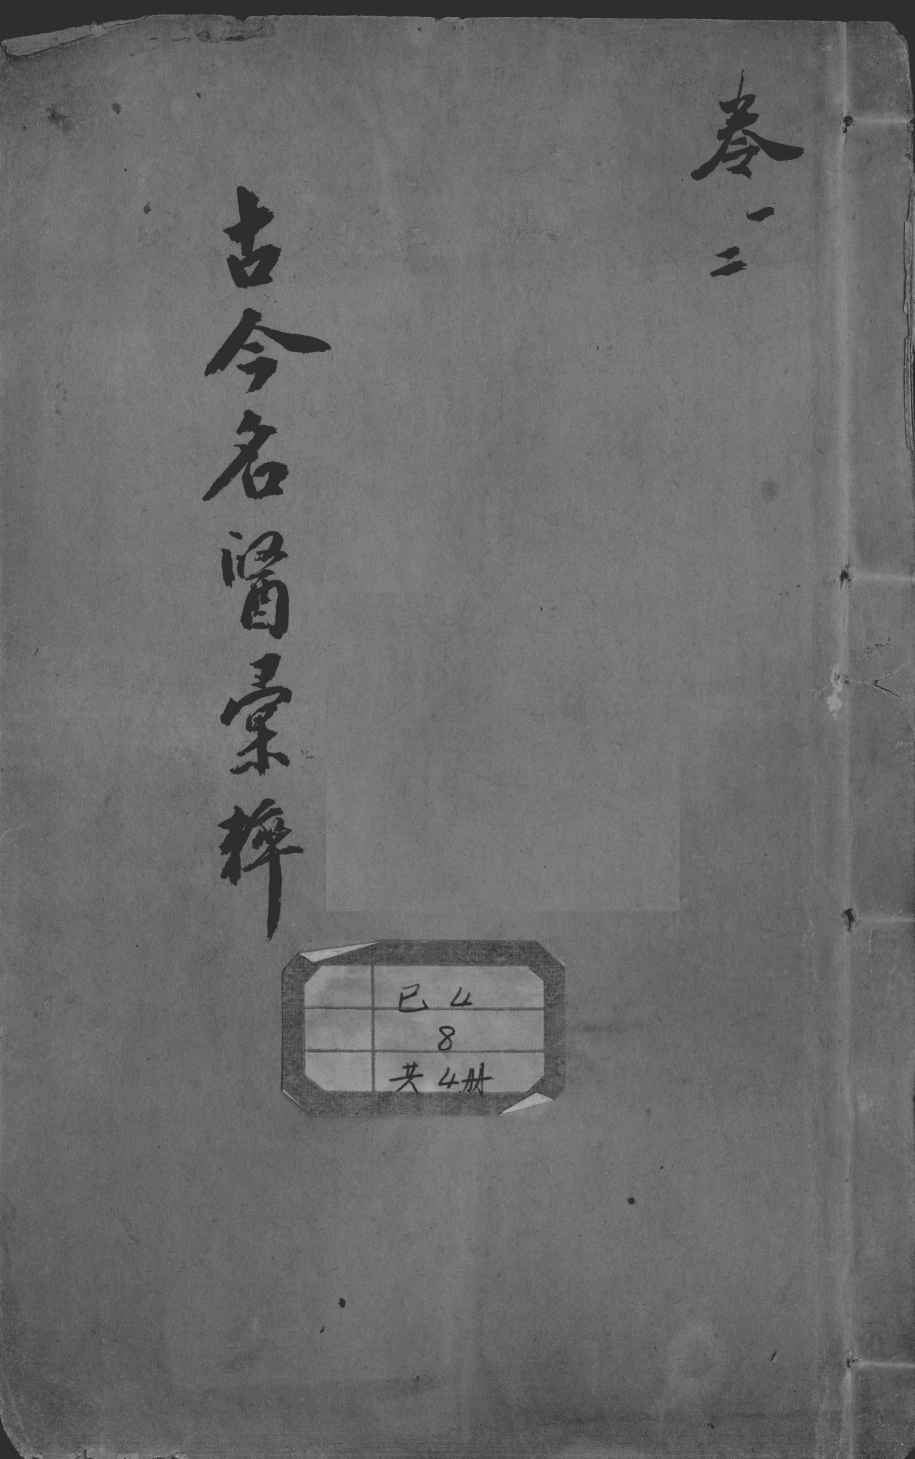 卷一
二
古今名醫彙粹
已 4
8
共 4册